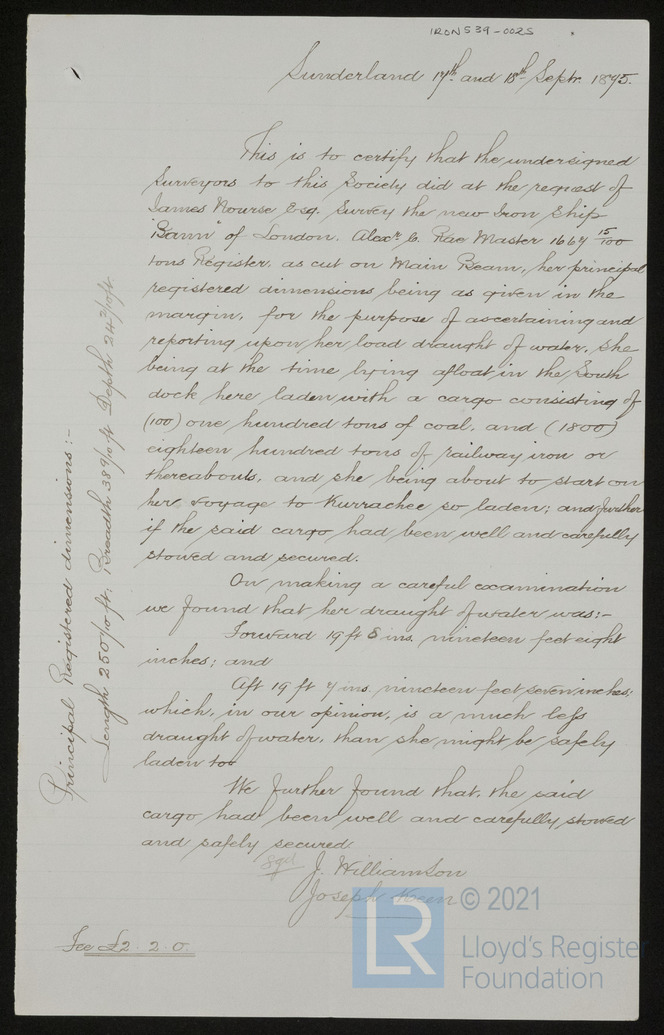 IRON539-0025
Sunderland 17th and 18th Septr. 1875.
This is to certify that the undersigned
Surveyors to this Society did at the request of
James Nourse Esq. Survey the new Iron Ship
"Bann" of London. Alexr. C. Rae Master 1667 15/100
tons Register, as cut on Main Beam, her principal
registered dimensions being as given in the
margin, for the purpose of ascertaining and
reporting upon her load draught of water, she
being at the time lying afloat in the South
dock here laden with a cargo consisting of
(100) one hundred tons of coal, and (1800)
eighteen hundred tons of railway iron or
thereabouts, and she being about to start on
her voyage to Kurrachee so laden; and further
if the said cargo had been well and carefully
stowed and secured.
On making a careful examination
we found that her draught of water was:-
Forward 19 ft 8 ins. nineteen feet eight
inches; and
Aft 19 ft 7 ins. nineteen feet seven inches;
which, in our opinion, is a much less
draught of water, than she might be safely
laden to.
We further found that, the said
cargo had been well and carefully stowed
and safely secured
Sgd J. Williamson
Joseph Keen
Fee £2. 2. 0.
Principal Registered dimensions:-
Length 250 1/10 ft. Breadth 38 9/10 ft Depth 24 3/10 ft.
LR
© 2021
Lloyd's Register
Foundation